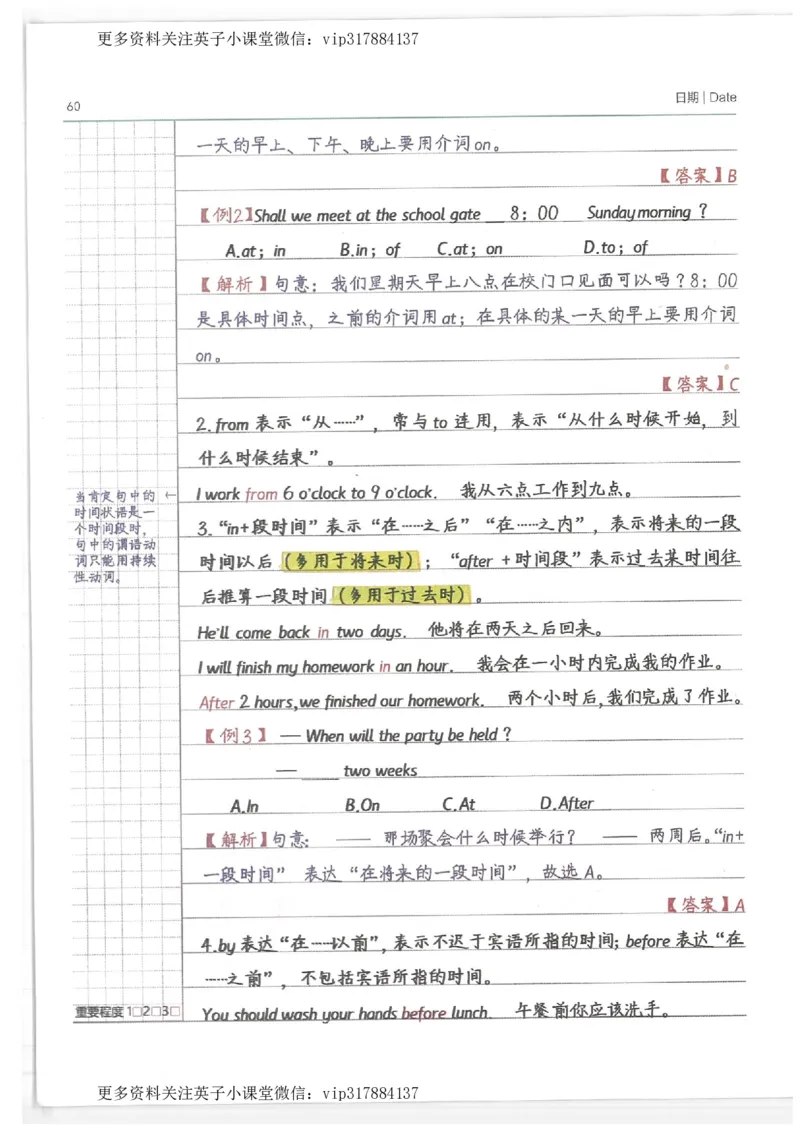 更多资料关注英子小课堂微信：vip317884137
日期 | Date
60
一天的早上、下午、晚上要用介词on。
【答案】B
【例2】Shall we meet at the school gate __ 8：00   Sunday morning？
A.at；in   B.in；of   C.at；on   D.to；of
【解析】句意：我们星期天早上八点在校门口见面可以吗？8：00
是具体时间点，之前的介词用at；在具体的某一天的早上要用介词
on。
【答案】C
2.from 表示“从……”，常与to 连用，表示“从什么时候开始，到
什么时候结束”。
I work from 6 o'clock to 9 o'clock. 我从六点工作到九点。
当肯定句中的 ←
时间状语是一
个时间段时，
句中的谓语动
词只能用持续
性动词。
3.“in+段时间”表示“在……之后”“在……之内”，表示将来的一段
时间以后（多用于将来时）；“after +时间段”表示过去某时间往
后推算一段时间（多用于过去时）。
He'll come back in two days. 他将在两天之后回来。
I will finish my homework in an hour. 我会在一小时内完成我的作业。
After 2 hours,we finished our homework. 两个小时后,我们完成了作业。
【例3】 — When will the party be held？
— ____ two weeks
A.In   B.On   C.At   D.After
【解析】句意： —— 那场聚会什么时候举行？ —— 两周后。“in+
一段时间” 表达“在将来的一段时间”，故选A。
【答案】A
4.by 表达“在……以前”，表示不迟于宾语所指的时间；before 表达“在
……之前”，不包括宾语所指的时间。
You should wash your hands before lunch. 午餐前你应该洗手。
重要程度 1□2□3□
更多资料关注英子小课堂微信：vip317884137